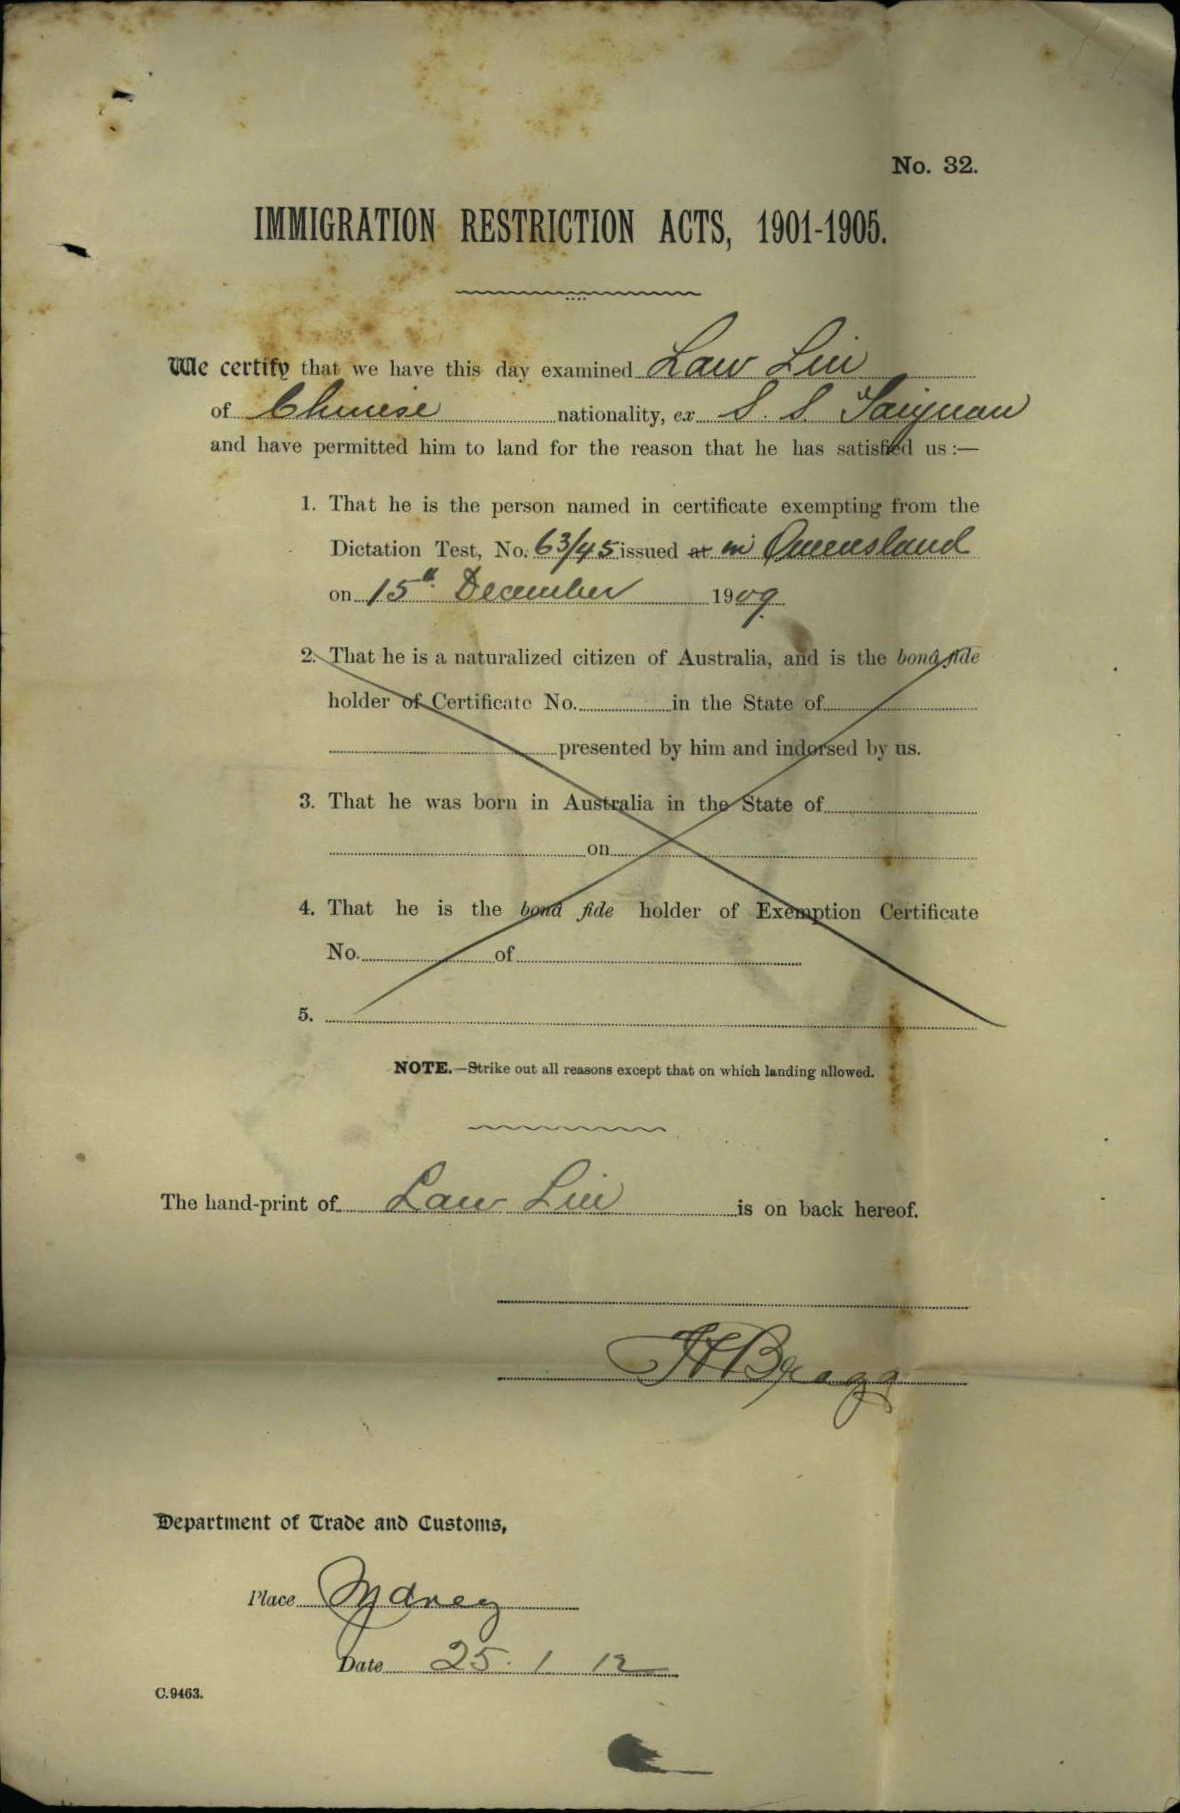 No. 32.
IMMIGRATION RESTRICTION ACTS, 1901-1905.
We certify that we have this day examined Law Lin
of Chinese nationality, ex S. S. Taiyuan
and have permitted him to land for the reason that he has satisfied us :—
1. That he is the person named in certificate exempting from the
Dictation Test, No. 63/45 issued at in Queensland
on 15th December 1909.
2. That he is a naturalized citizen of Australia, and is the bonâ fide
holder of Certificate No. in the State of
presented by him and indorsed by us.
3. That he was born in Australia in the State of
on
4. That he is the bonâ fide holder of Exemption Certificate
No. of
5.
NOTE.—Strike out all reasons except that on which landing allowed.
The hand-print of Law Lin is on back hereof.
Bragg
Department of Trade and Customs,
Place Sydney
Date 25. 1 12
C.9463.